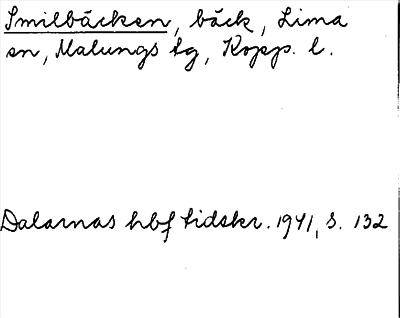 Smilbäcken, bäck, Lima
sn, Malungs tg, Kopp. l.
Dalarnas hbf tidskr. 1941, s. 132